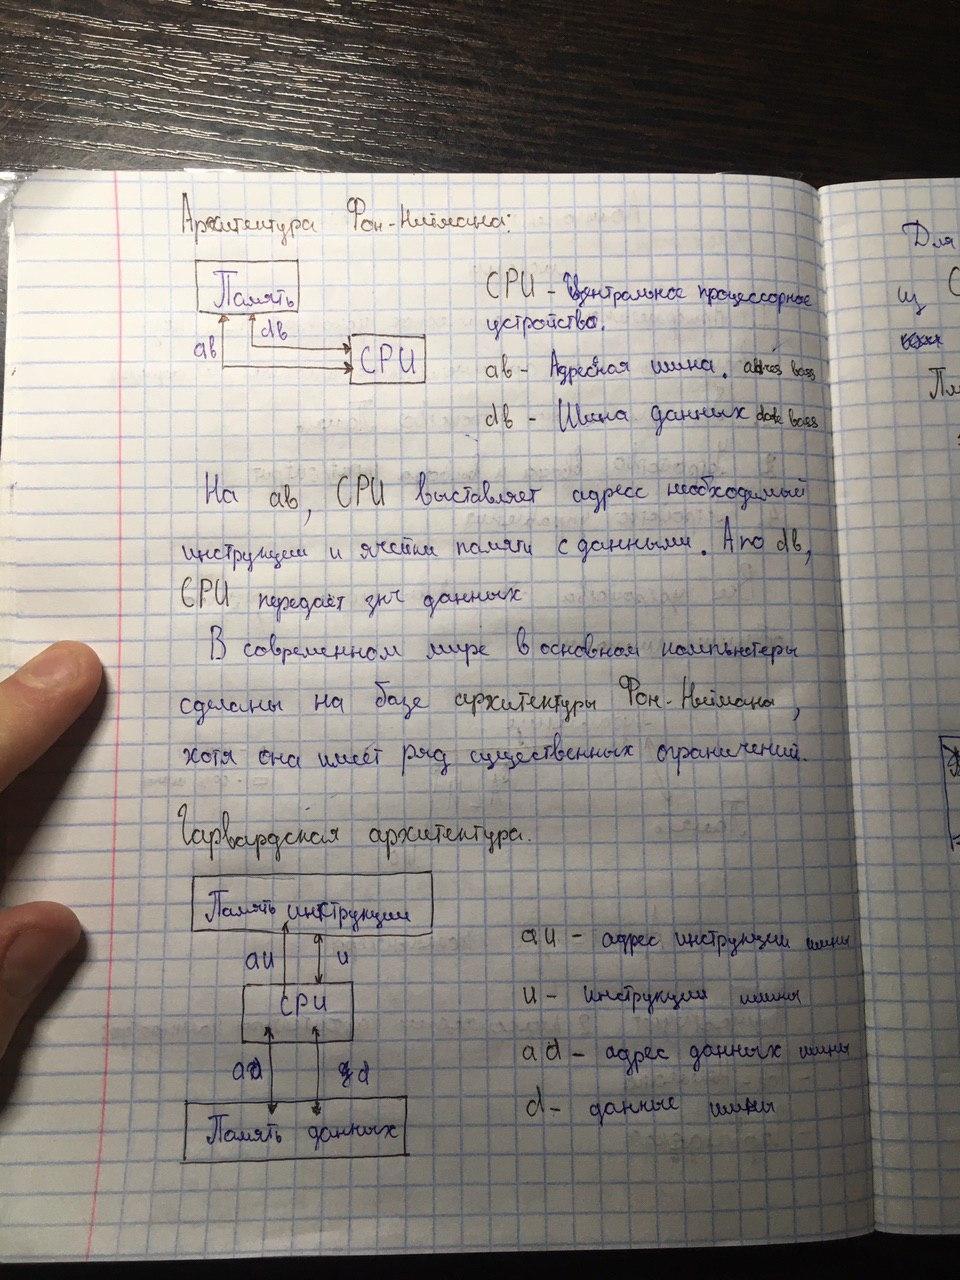 Архитектура Фон-Неймана:
Память
db
ab
CPU
CPU - Центральное процессорное
устройство.
ab - Адресная шина.
db - Шина данных
На ab, CPU выставляет адресс необходимый
инструкции и ячейки памяти с данными. А по db,
CPU передаёт знч данных
В современном мире в основном компьютеры
сделаны на базе архитектуры Фон-Неймана,
хотя она имеет ряд существенных ограничений.
Гарвардская архитектура.
Память инструкции
аи
и
CPU
ad
d
Память данных
аи - адрес инструкции шины
и - инструкции шины
ad - адрес данных шины
d - данные шины
Для
щ